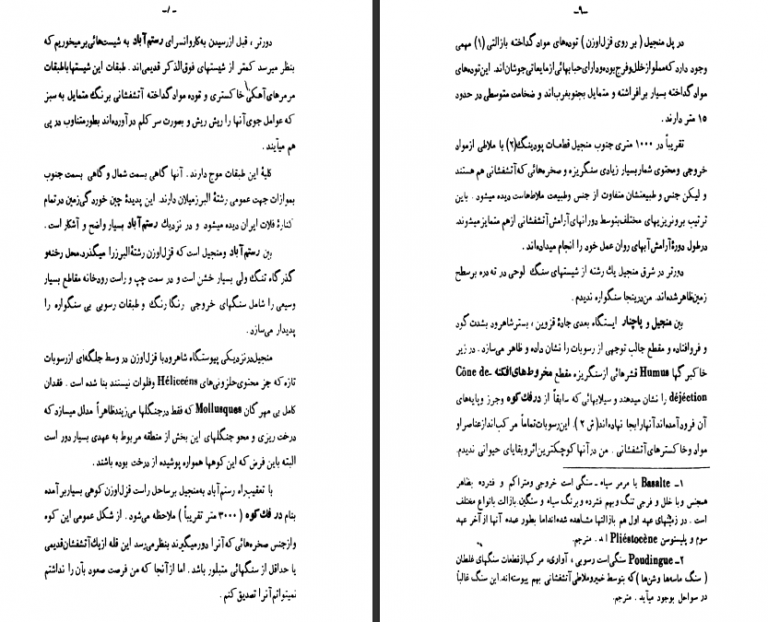 -۸-
دورتر ، قبل ازرسیدن به‌کاروانسرای رستم‌آباد به شیست‌هائی برمیخوریم که
بنظر میرسد کمتر از شیستهای فوق‌الذکر قدیمی‌اند . طبقات این شیستها باطبقات
مرمرهای آهکی خاکستری و توده مواد گداخته آتشفشانی برنگ متمایل به سبز
که عوامل جوی آنها را ریش ریش و بصورت سر کلم در آورده‌اند بطور متناوب در پی
هم میآیند .
کلیهٔ این طبقات موج دارند . آنها گاهی بسمت شمال و گاهی بسمت جنوب
بموازات جهت عمومی رشتهٔ البرز میلان دارند. این پدیدهٔ چین خوردگی زمین در تمام
کنارهٔ فلات ایران دیده میشود و در نزدیک رستم‌آباد بسیار واضح و آشکار است .
بین رستم‌آباد ومنجیل است که قزل‌اوزن رشتهٔ‌البرز را میگذرد. محل رخنه‌و
گذرگاه تنگ ولی بسیار خشن است و در سمت چپ و راست رودخانه مقاطع بسیار
وسیعی را شامل سنگهای خروجی رنگارنگ و طبقات رسوبی بی سنگواره را
پدیدار می‌سازد .
منجیل‌درنزدیکی پیوستگاه شاهرود با قزل‌اوزن در وسط جلگه‌ای‌از رسوبات
تازه که جز محتوی حلزونی‌های Héliceéns وفلوات نیستند بنا شده است . فقدان
کامل بی مهرگان Mollusques که فقط درجنگلها می‌زیند ظاهراً مدلل میسازد که
درخت ریزی و محو جنگلهای این بخش از منطقه مربوط به عهدی بسیار دور است
البته باین فرض که این کوهها همواره پوشیده از درخت بوده باشند .
با تعقیب راه رستم‌آباد به‌منجیل برساحل راست قزل‌اوزن کوهی بسیار برآمده
بنام درفك کوه ( ۳۰۰۰ متر تقریباً ) ملاحظه می‌شود . از شکل عمومی این کوه
وازجنس صخره‌هائی که آنرا دورمیگیرند بنظر می‌رسد این قله ازیك آتشفشان قدیمی
یا حداقل از سنگهائی متبلور باشد . اما از آنجا که من فرصت صعود بآن را نداشتم
نمیتوانم آنرا تصدیق کنم .
-۹-
در پل منجیل ( بر روی قزل‌اوزن ) توده‌های مواد گداخته بازالتی (۱) مهمی
وجود دارد که مملو از خلل و فرج بوده و دارای حبابهائی از مایعاتی جوشان‌اند. این توده‌های
مواد گداخته بسیار برافراشته و متمایل بجنوبغرب‌اند و ضخامت متوسطی در حدود
۱۵ متر دارند .
تقریباً در ۱۰۰۰ متری جنوب منجیل قطعات پودینگ(۲) با ملاطی از مواد
خروجی ومحتوی شمار بسیار زیادی سنگریزه و صخره‌هائی که آتشفشانی هم هستند
و لیکن جنس و طبیعتشان متفاوت از جنس وطبیعت ملاطهاست دیده میشود . باین
ترتیب برونریزیهای مختلف بتوسط دورانهای آرامش آتشفشانی ازهم متمایز میشوند.
درطول دورهٔ آرامش آبهای روان عمل خود را انجام میداده‌اند .
دورتر در شرق منجیل یك رشته از شیستهای سنگ لوحی در ته دره برسطح
زمین ظاهر شده‌اند. من دراینجا سنگواره ندیدم.
بین منجیل و پاچنار ایستگاه بعدی جادهٔ قزوین ، بستر شاهرود بشدت گود
و فرو افتاده و مقطع جالب توجهی از رسوبات را نشان داده و ظاهر می‌سازد . در زیر
خاکبرگها Humus قشرهائی از سنگریزه مقطع مخروط‌های‌افکنه Cône de-
déjéction را نشان میدهند و سیلابهائی که سابقاً از درفك کوه وجرز وپایه‌های
آن فرود آمده‌اند آنهارا بجا نهاده‌اند( ش ۲ ) . این رسوبات تماماً مرکب‌اند از عناصر او
مواد وخاکسترهای آتشفشانی . من در آنها کوچکترین اثر و بقایای حیوانی ندیدم.
۱ـ Basalte یا مرمر سیاه ـ سنگی است خروجی ومتراکم و فشرده بظاهر
همجنس وبا خلل و فرجی تنگ وبهم فشرده و برنگ سیاه و سنگین بازالت باانواع مختلف
است . در زمینهای عهد اول هم بازالتها مشاهده شده‌اند اما بطور عمده آنها از آخر عهد
سوم و پلیستوسن Pliéstocène اند . مترجم.
۲ـ Poudingue سنگی‌است رسوبی ، آواری، مرکب ازقطعات سنگهای غلطان
( سنگ ماسه‌ها وشن‌ها) که بتوسط خمیر وملاطی آتشفشانی بهم پیوسته‌اند. این سنگ غالباً
در سواحل بوجود می‌آید . مترجم.